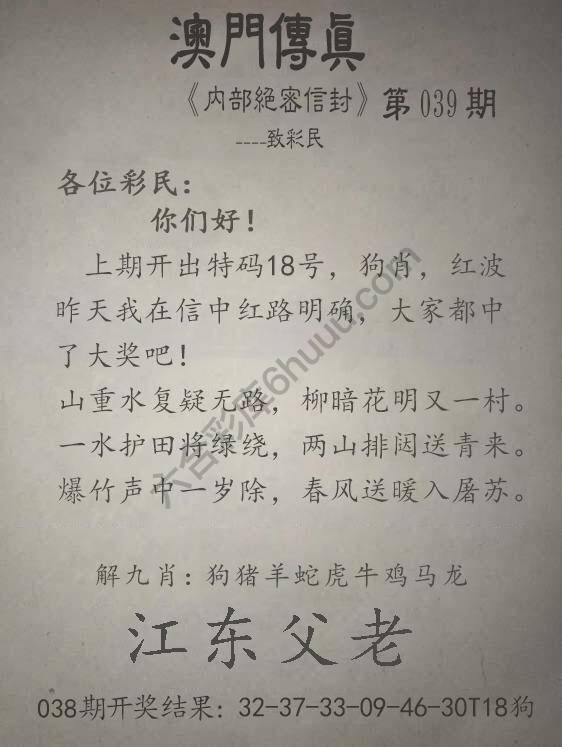 澳門傳真
《内部絕密信封》第039期
----致彩民
各位彩民：
你们好！
上期开出特码18号，狗肖，红波
昨天我在信中红路明确，大家都中
了大奖吧！
山重水复疑无路，柳暗花明又一村。
一水护田将绿绕，两山排闼送青来。
爆竹声中一岁除，春风送暖入屠苏。
解九肖：狗猪羊蛇虎牛鸡马龙
江东父老
038期开奖结果：32-37-33-09-46-30T18狗
六合彩库6huuu.com